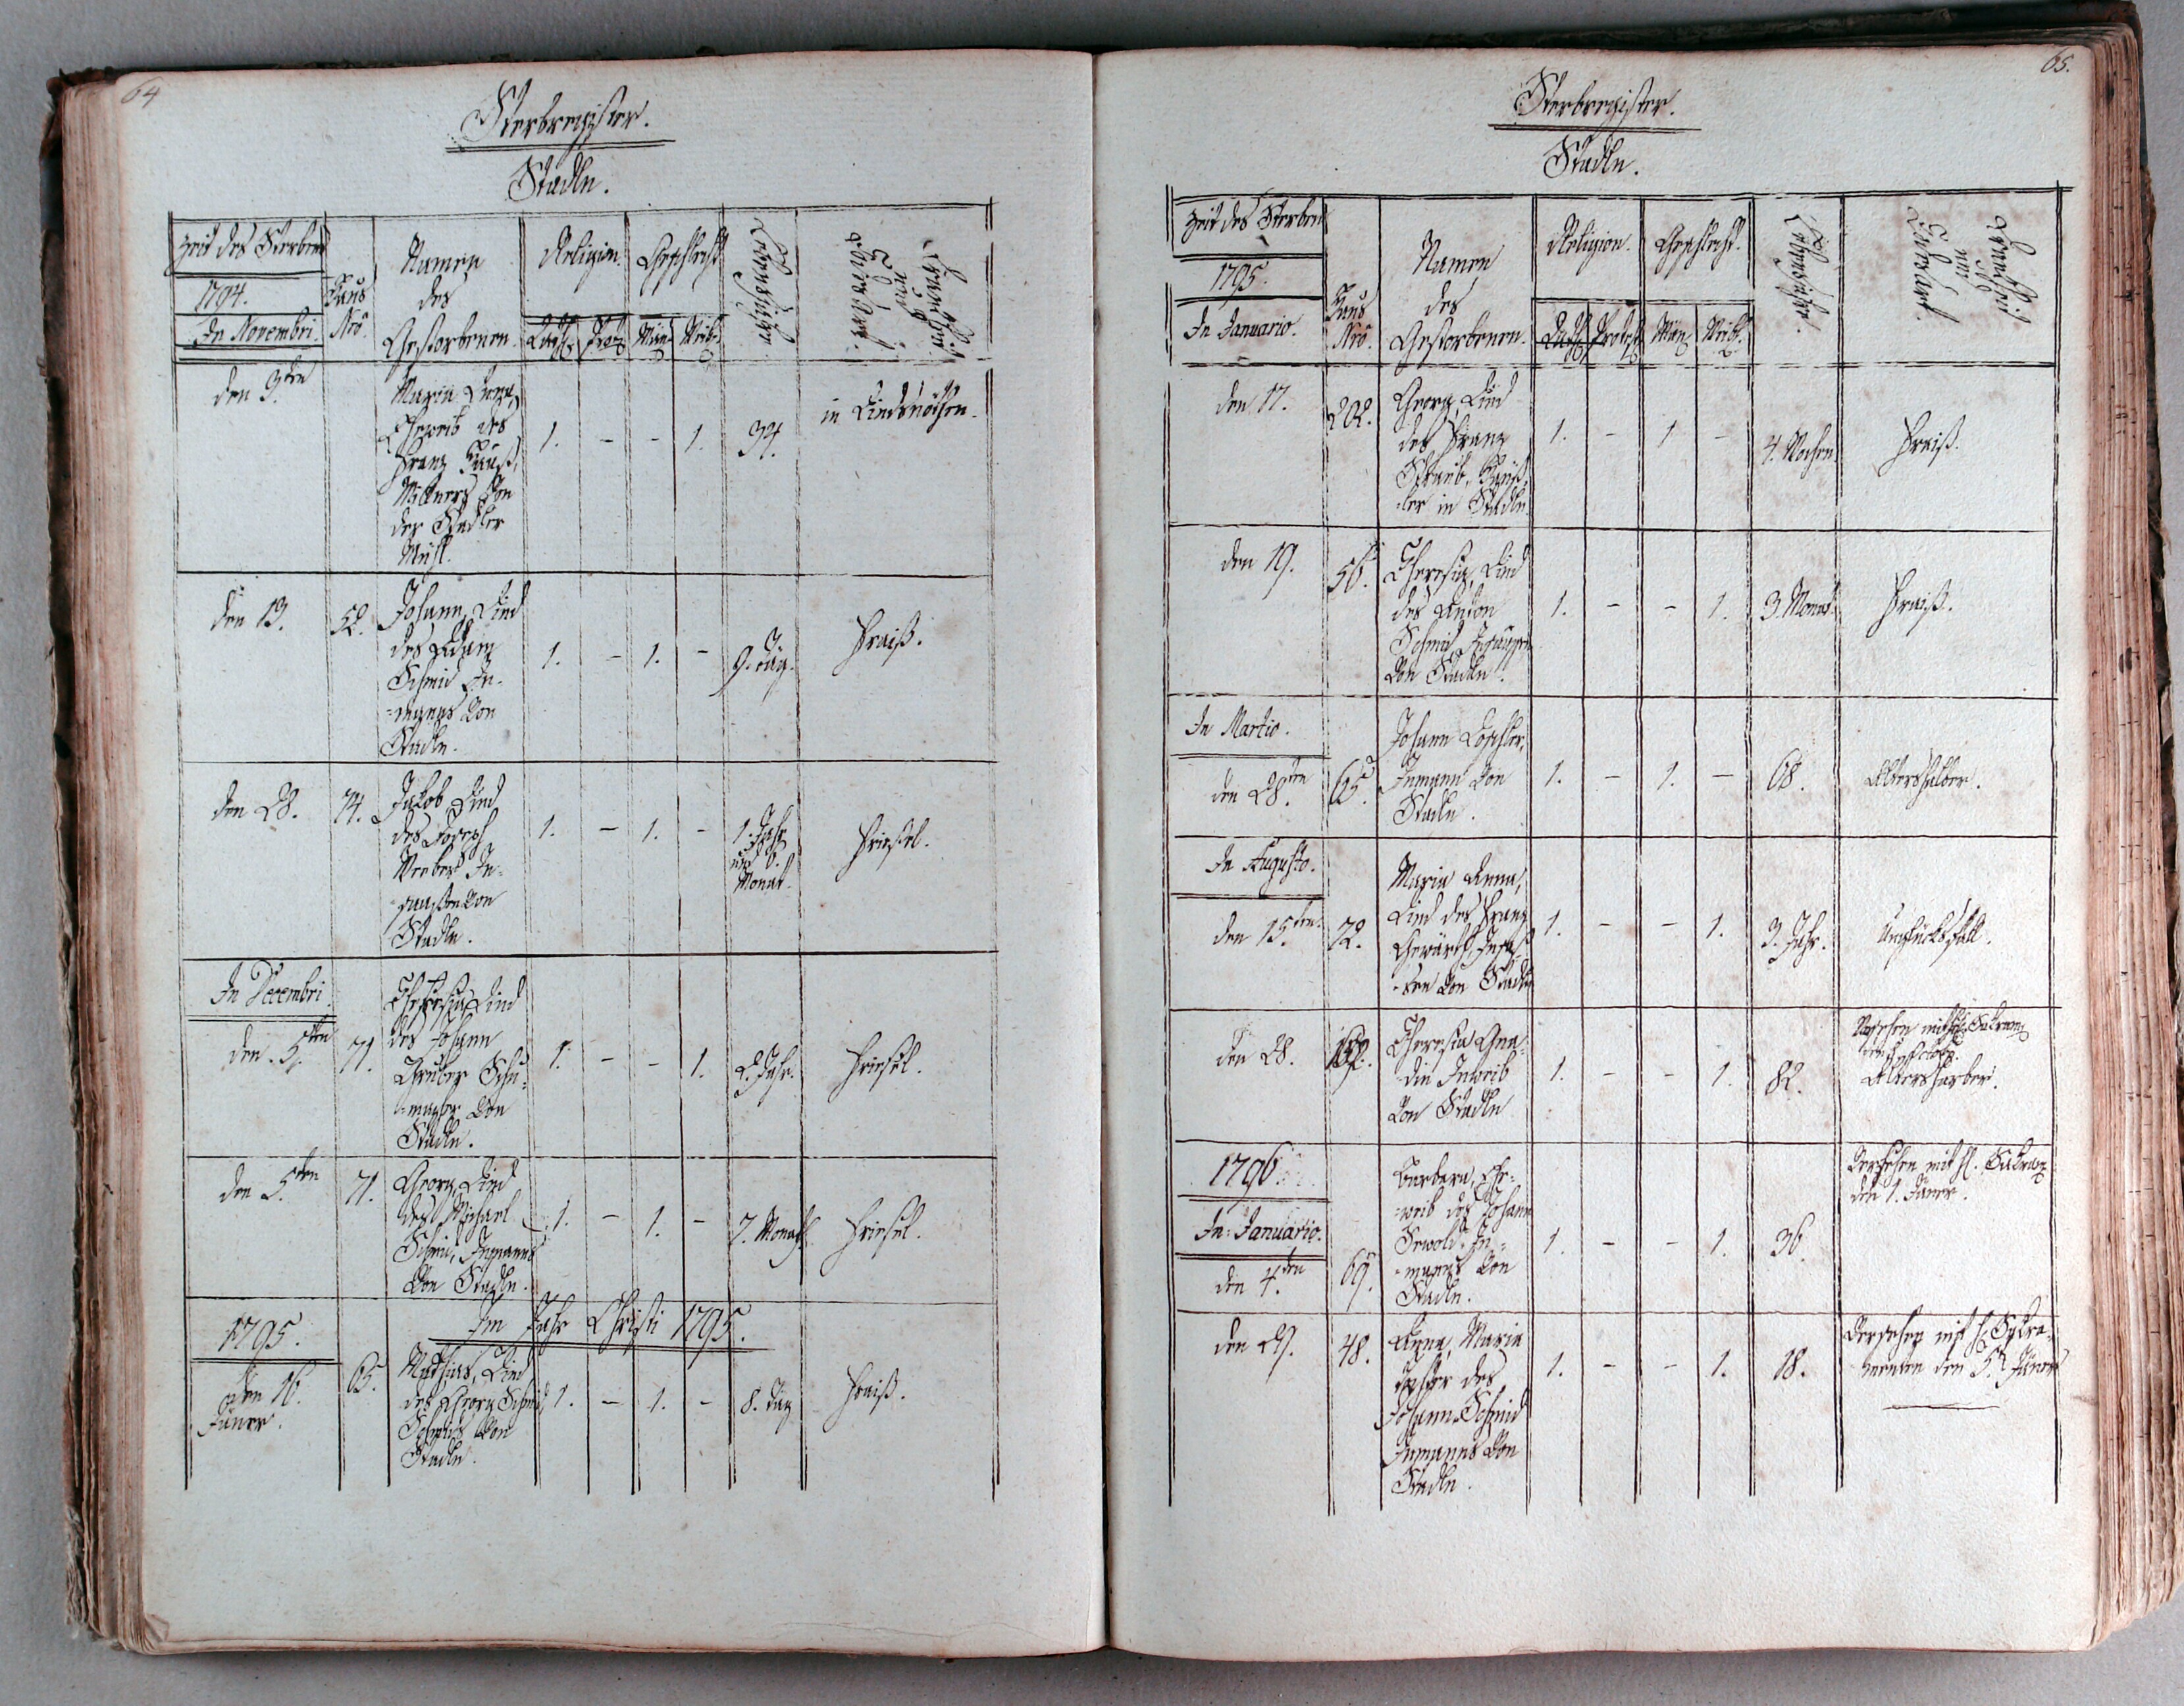 64
Sterbregister.
Stadln.
Zeit des Sterbens
1794.
In Novembri.
Haus
Nro.
Namen
des
Gestorbenen.
Religion.
Kath.
Prot.
Geschlecht
Män
Weib.
Lebensjahre.
Krankheit
und
Todesart.
den 3ten
Maria
Eheweib des
Franz
von
der Stadler
Mühl.
1.
-
-
1.
34.
in Kindsnöthen.
den 13.
52.
Johann, Kind
des Adam
Schmid In-
=manns von
Stadln.
1.
-
1.
-
9. täg.
Frais.
den 28.
74.
Jakob, Kind
des Joseph
Weber In-
von
Stadln.
1.
-
1.
-
1. Jahr
und 6.
Monat.
Friesel.
In Decembri.
den 5ten
71.
Theresia, Kind
des Johann
Gruber Schu-
=macher von
Stadln.
1.
-
-
1.
2. Jahr.
Friesel.
den 5ten
71.
Georg, Kind
des Michael
Schmid, Inmanns
von Stadln.
1.
-
1.
-
7. Monath.
Friesel.
Im Jahr Christi 1795.
1795.
den 16.
Jäner.
65.
Mathias, Kind
des Georg Schmid,
von
Stadln.
1.
-
1.
-
8. Täg
Frais.
65.
Sterbregister.
Stadln.
Zeit des Sterbens
1795.
In Januario.
Haus
Nro.
Namen
des
Gestorbenen.
Religion.
Kath.
Protest.
Geschlecht.
Män
Weib.
Lebensjahre.
Krankheit
und
Todesart.
den 17.
202.
Georg, Kind
des Franz
Straub, Häuß-
=ler in Stadln.
1.
-
1
-
4. Wochen
Frais.
den 19.
56.
Theresia, Kind
des Anton
Schmid,
von Stadln.
1.
-
-
1.
3. Monat.
Frais.
In Martio.
den 28ten
65.
Johann
Inmann von
Stadln.
1.
-
1.
-
68.
Altershalber.
In Augusto.
den 15ten.
72.
Maria Anna,
Kind des Franz
von Stadln
1.
-
-
1.
3. Jahr.
Unglücksfall.
den 28.
Theresia Gna-
=din Inweib
von Stadln
1.
-
-
1.
82.
Versehen mit
Altershalber.
1796.
In Januario.
den 4.ten
69.
Barbara, Ehe-
=weib des Johann
In-
=manns von
Stadln.
1.
-
-
1.
36.
Versehen mit hl. Sakram.
den 1. Jäner.
den 29.
48.
Anna, Maria
Tochter des
Johann Schmid
Inmanns von
Stadln.
1.
-
-
1.
18.
Versehen mit hl. Sakra-
menten den 5t. Jäner